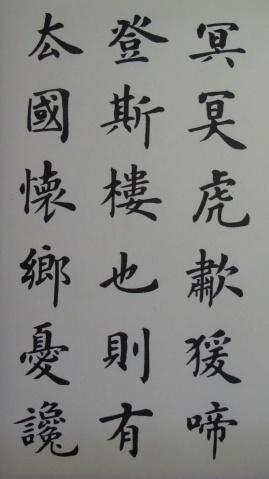 冥冥虎歗猨啼
登斯樓也則有
厺國懷鄉憂讒